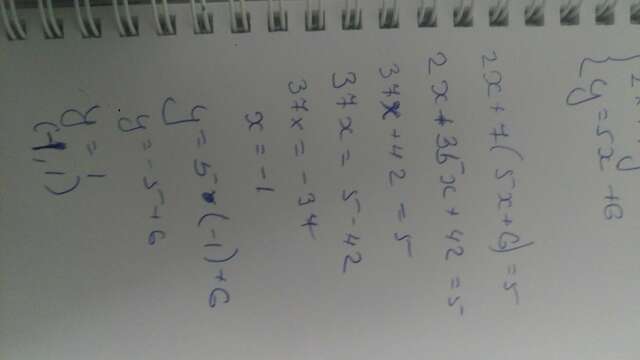 y = 5x + 6
2x + 7(5x + 6) = 5
2x + 35x + 42 = 5
37x + 42 = 5
37x = 5 - 42
37x = -37
x = -1
y = 5 · (-1) + 6
y = -5 + 6
y = 1
(-1, 1)